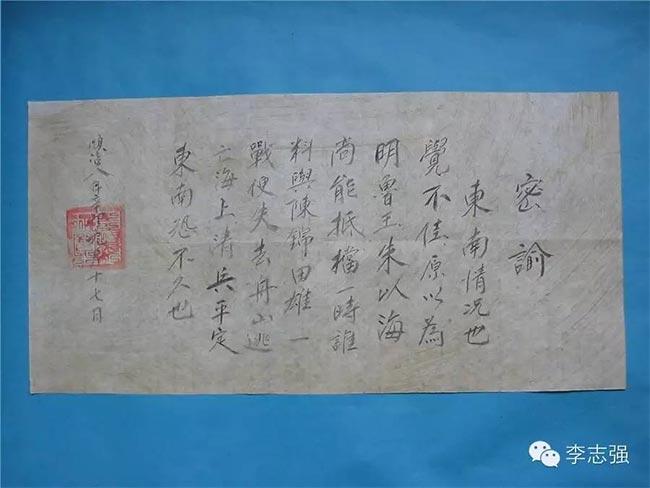 密諭
東南情况也
覺不佳原以為
明魯王朱以海
尚能抵擋一時誰
料與陳錦田雄一
戰便失去舟山逃
亡海上清兵平定
東南恐不久也
順治八年 十七日
李志强